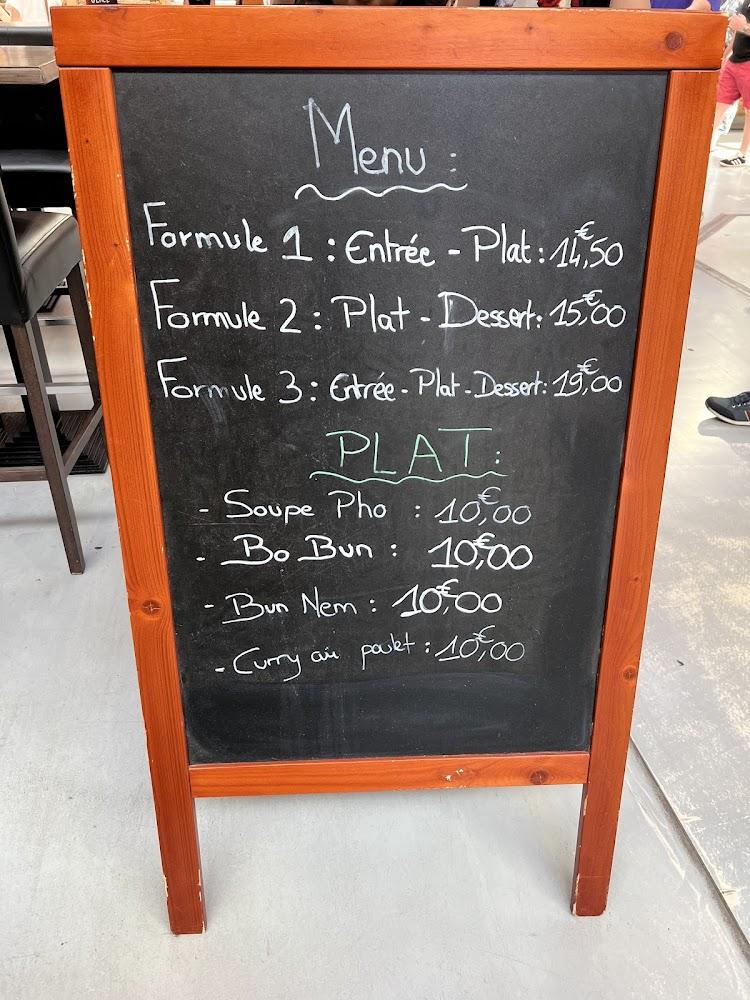 Menu :
Formule 1 : Entrée - Plat : 14,50€
Formule 2 : Plat - Dessert : 15,00€
Formule 3 : Entrée - Plat - Dessert : 19,00€
PLAT :
- Soupe Pho : 10,00€
- Bo Bun : 10,00€
- Bun Nem : 10,00€
- Curry au poulet : 10,00€